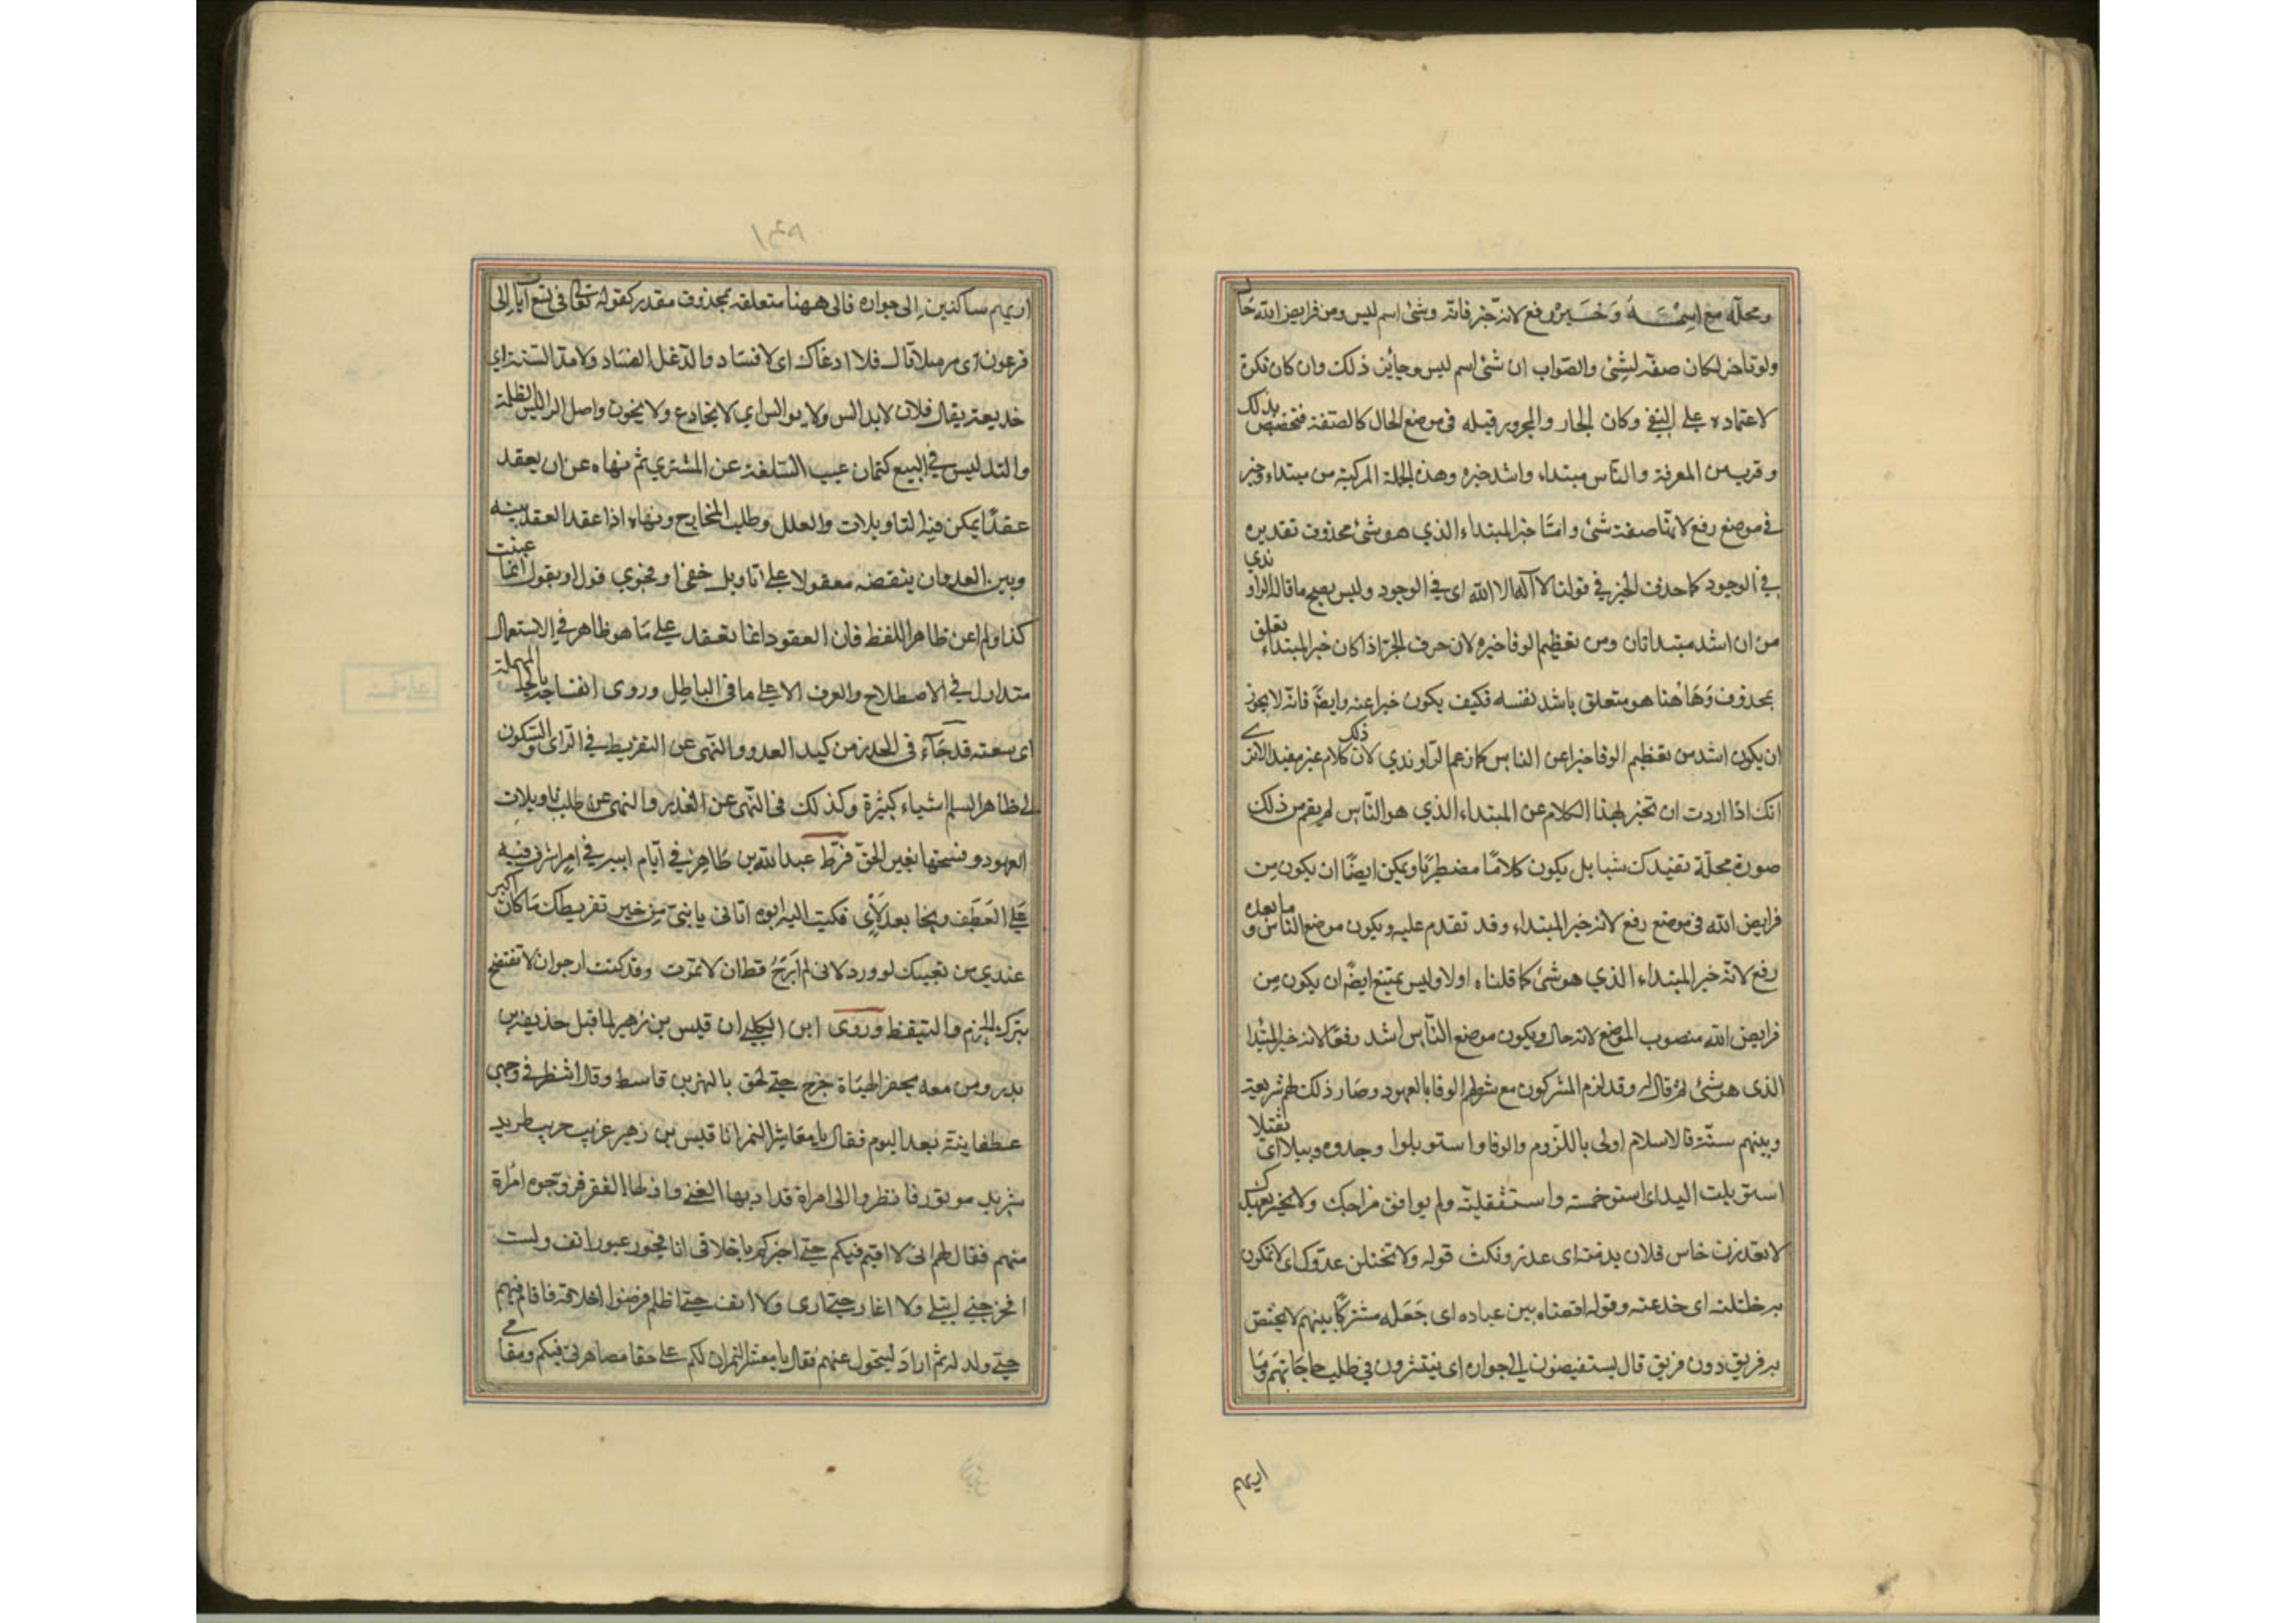 ومحله مع اسمه وخبره رفع لانه خبر فانه وشئ اسم ليس ومن فرايض الله حال
ولو تاخر لكان صفة لشئ والصواب ان شئ اسم ليس وجايز ذلك وان كان نكرة
لاعتماده على النفي وكان الجار والمجرور قبله في موضع الحال كالصفة فتخصص بذلك
وقرب من المعرفة والناس مبتداء واشد خبره وهذه الجملة المركبة من مبتداء وخبر
في موضع رفع لانها صفة شئ وامّا خبر المبتداء الذي هو شئ محذوف تقديره
في الوجود كما حذف الخبر في قولنا لا آله الا الله اى في الوجود وليس يصح ما قال الراوندي
من ان اشد مبتدا ثان ومن تعظيم الوفا خبره لان حرف الجر اذا كان خبر المبتداء تعلق
بمحذوف وهاهنا هو متعلق باشد نفسه فكيف يكون خبرا عنه وايضً فانه لا يجوز
ان يكون اشد من تعظيم الوفا خبرا عن الناس كما زعم الراوندي لان ذلك كلام غير مفيد الا ترى
انك اذا اردت ان تخبر بهذا الكلام عن المبتداء الذي هو الناس لم يقم من ذلك
صورة محصلة تفيدك شيا بل يكون كلامًا مضطربًا ويمكن ايضًا ان يكون من
فرايض الله في موضع رفع لانه خبر المبتداء وقد تقدم عليه ويكون موضع الناس وما بعده
رفع لانه خبر المبتداء الذي هو شئ كما قلناه اولا وليس يمتنع ايضً ان يكون من
فرايض الله منصوب الموضع لانه حال ويكون موضع الناس اشد رفعًا لانه خبر المبتدا
الذى هو شئ ثم قال له وقد لزم المشركون مع شركهم الوفا بالعهود وصار ذلك لهم شريعة
وبينهم سنّة فالاسلام اولى باللزوم والوفا واستوبلوا وجدوه وبيلا اى ثقيلا
استوبلت البلد اى استوخمته واستثقلته ولم يوافق مزاجك ولا تخيس بعهدك
لا تغدرن خاس فلان بذمته اى غدر ونكث قوله ولا تختلن عدوك اى لا تمكرن
به ختلته اى خدعته وقوله افضاه بين عباده اى جَعَله مشتركًا بينهم لا يختص
به فريق دون فريق قال يستفيضون الى جواره اى ينتشرون في طلب حاجاتهم وما
اربهم
١٤٩
اربهم ساكنين الى جواره فالى ههنا متعلقه بمحذوف مقدر كقوله تعالى في تسع آيات الى
فرعون اى مرسلا قال فلا ادغال اى لا افساد والدغل الفساد ولا مدالسة اي
خديعة يقال فلان لا يدالس ولا يوالس اي لا يخادع ولا يخون واصل الدلس الظلمة
والتدليس في البيع كتمان عيب السلعة عن المشتري ثم نهاه عن ان يعقد
عقدًا يمكن فيه التاويلات والعلل وطلب المخارج ونهاه اذا عقد العقد بينه
وبين العدو ان ينقضه معقولا على تاويل خفي او فحوى قول او يقول انما عنيت
كذا ولم اعن ظاهر اللفظ فان العقود انما تعقد على ما هو ظاهر في الاستعمال
متداول في الاصطلاح والعرف لا على ما في الباطن وروى انفساحه بالحا المهملة
اى سعته قد جاء في الحذر من كيد العدو والنهى عن التفريط في الراى والسكون
الى ظاهر السلم اشياء كثيرة وكذلك في النهى عن الغدر والنهى عن طلب تاويلات
العهود وفسخها بغير الحق فرّط عبد الله بن طاهر في ايام ابيه في امر اشرف فيه
على العَطَف ونجا بعد لأى فكتب اليه ابوه اتاني يا بنيّ من خبر تفريطك ما كان اكبر
عندي من نعيك لو ورد لاني لم ارجُ قط ان لا تموت وقد كنت ارجو ان لا تفتضح
بترك الحزم والتيقظ وروى ابن الكلبي ان قيس بن زهير لما قتل حذيفة بن
بدر ومن معه بجفر الهباة خرج حتى لحق بالنمر بن قاسط وقال لا تنظر في وجهي
غطفانية بعد اليوم فقال يا معاشر النمر انا قيس بن زهير غريب حريب طريد
شريد موتور فانظروا الى امراة قد ادبها الغنى واذلها الفقر فزوجوه امراة
منهم فقال لهم انى لا اقيم فيكم حتى اخبركم باخلاقي انا فخور غيور انف ولست
افخر حتى ابتلى ولا اغار حتى ارى ولا انف حتى اظلم فرضوا اخلاقه فاقام فيهم
حتى ولد له ثم اراد ليتحول عنهم فقال يا معشر النمر ان لكم على حقا مصاهرتي فيكم ومقامي